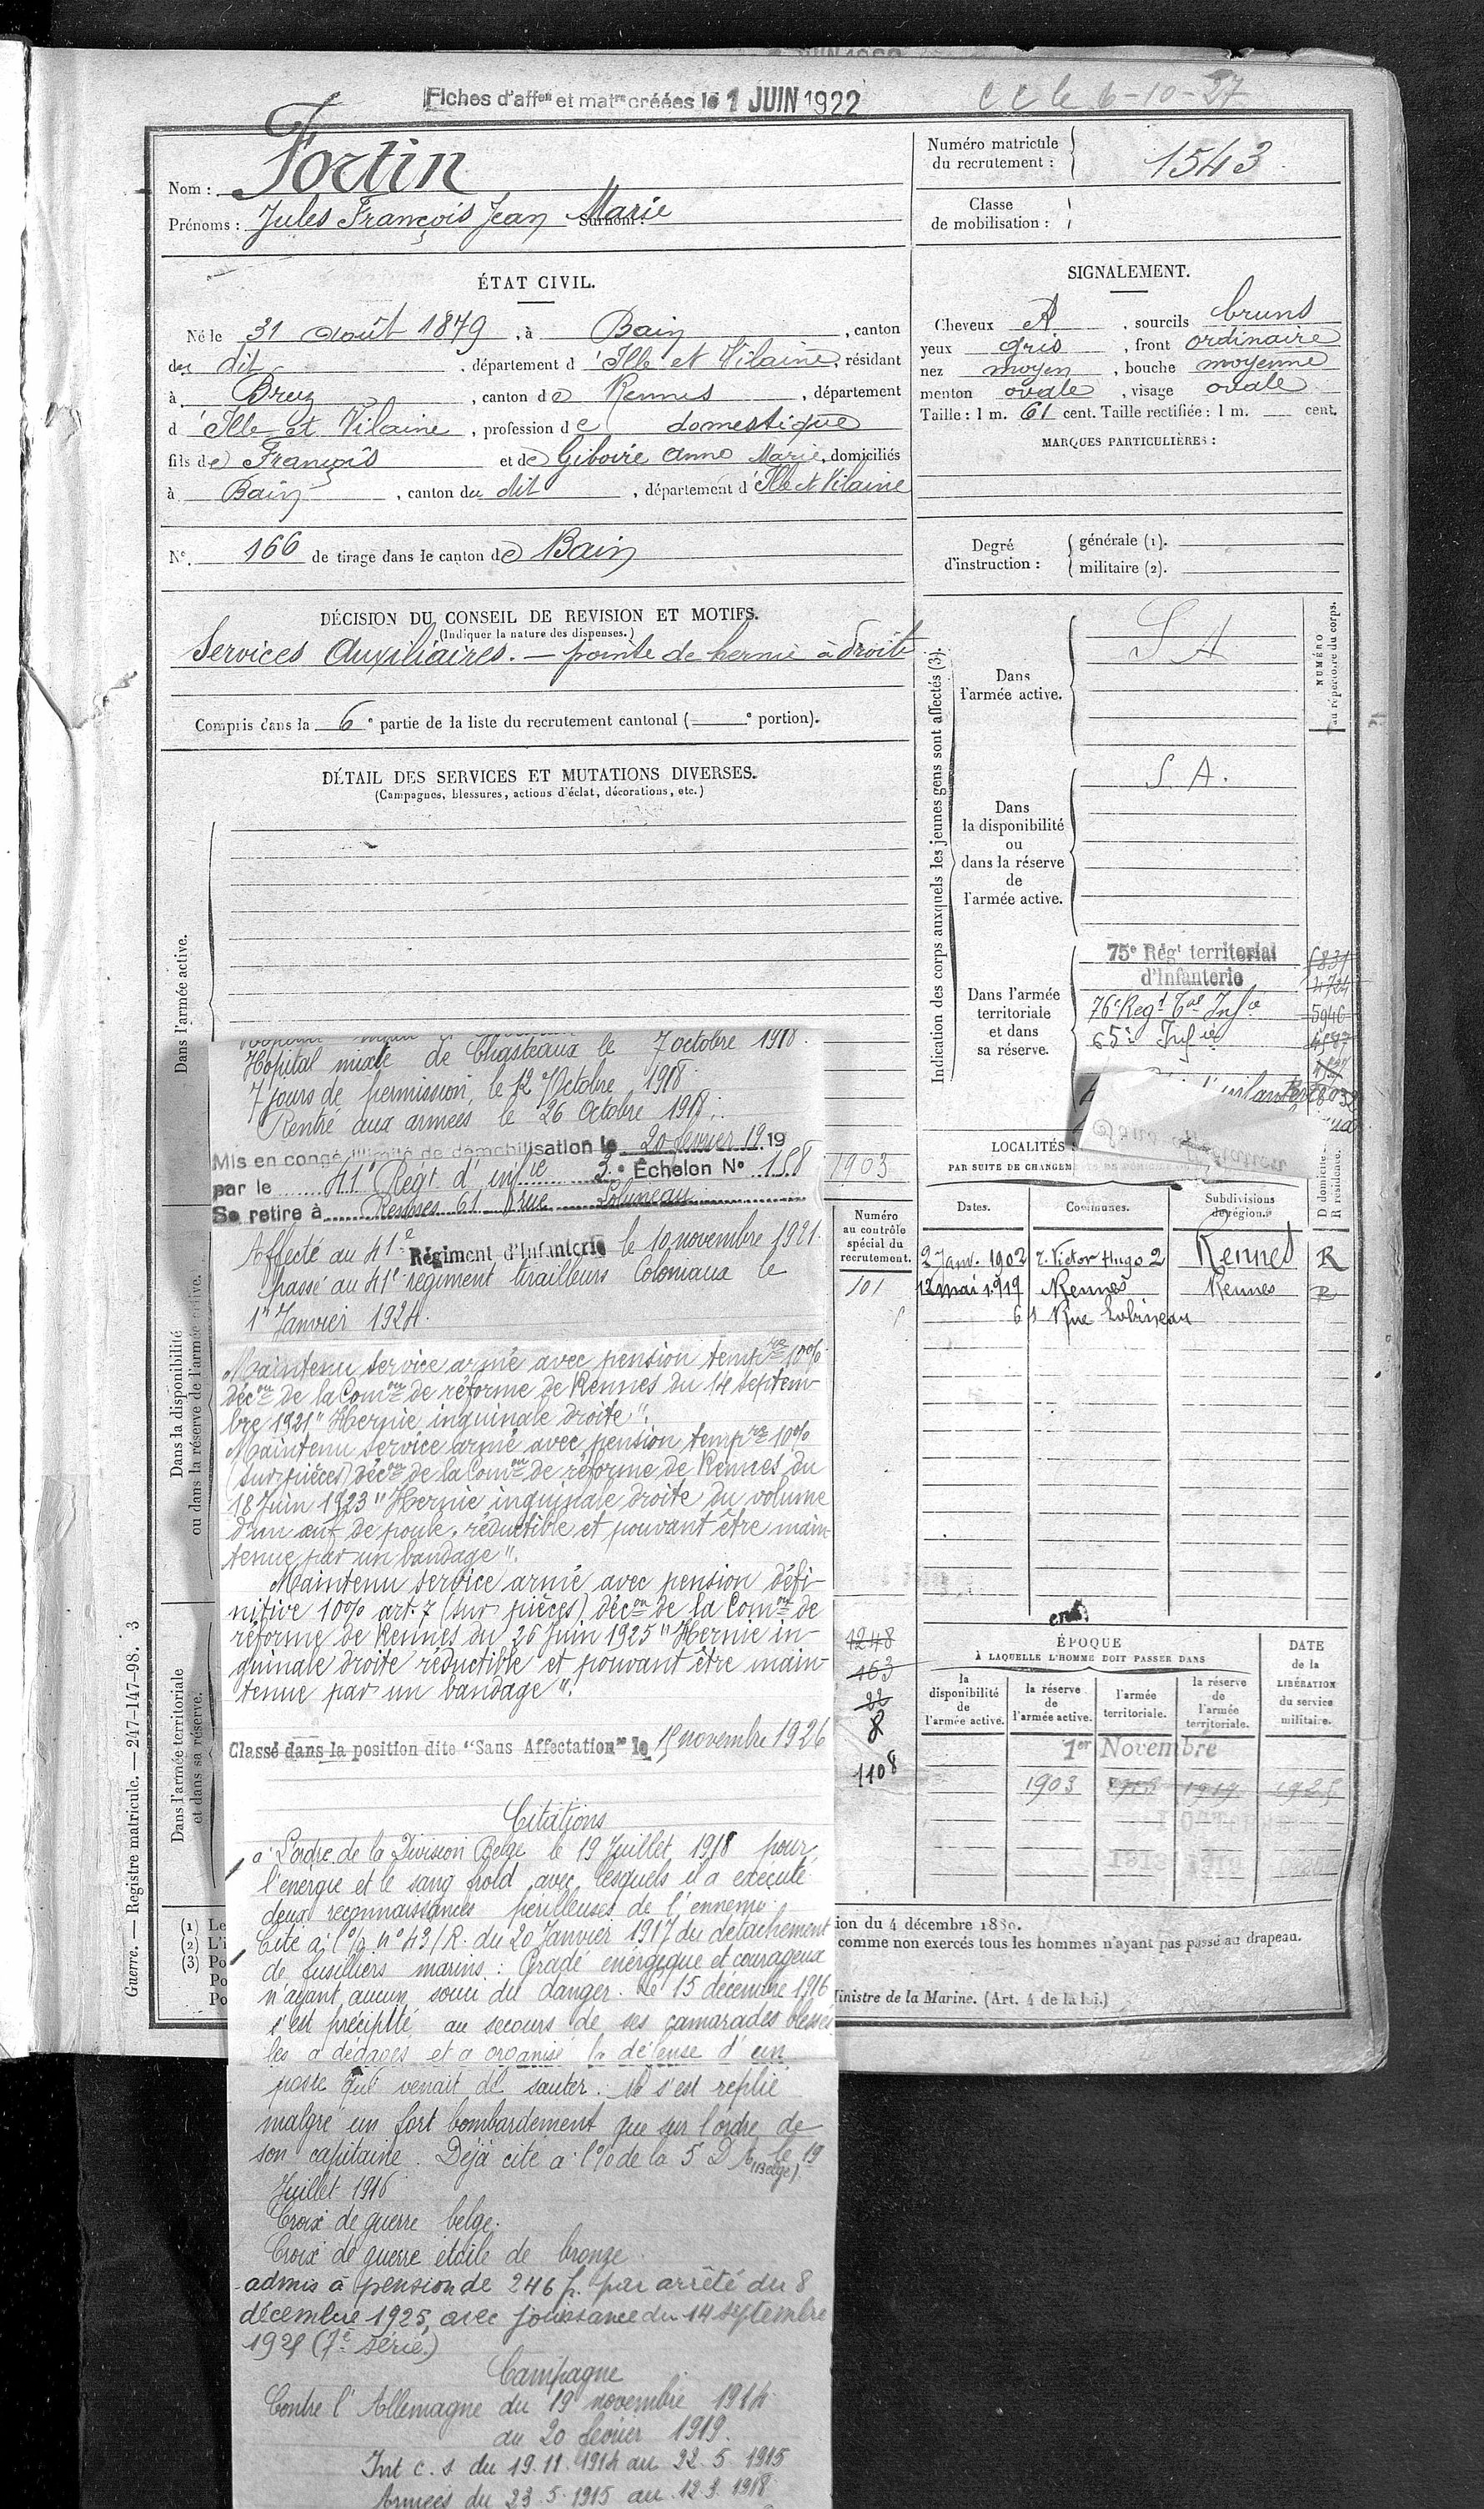 Fiches d'aff^on et mat^re créées le 1 JUIN 1922
C C le 6-10-27
Nom : Fortin
Prénoms : Jules François Jean Marie Surnom :
Numéro matricule du recrutement : 1543
Classe de mobilisation :
ÉTAT CIVIL.
Né le 31 août 1879, à Bain, canton
du dit, département d'Ille et Vilaine, résidant
à Bruz, canton de Rennes, département
d'Ille et Vilaine, profession de domestique
fils de François et de Giboire Anne Marie, domiciliés
à Bain, canton du dit, département d'Ille et Vilaine
N° 166 de tirage dans le canton de Bain
SIGNALEMENT.
Cheveux , sourcils bruns
yeux gris, front ordinaire
nez moyen, bouche moyenne
menton ovale, visage ovale
Taille : 1 m. 61 cent. Taille rectifiée : 1 m. — cent.
MARQUES PARTICULIÈRES :
Degré d'instruction : générale (1).
militaire (2).
DÉCISION DU CONSEIL DE REVISION ET MOTIFS.
(Indiquer la nature des dispenses.)
Services Auxiliaires. — pointe de hernie à droite
Compris dans la 6e partie de la liste du recrutement cantonal (——e portion).
DÉTAIL DES SERVICES ET MUTATIONS DIVERSES.
(Campagnes, blessures, actions d'éclat, décorations, etc.)
Dans l'armée active.
Hopital mixte de Chasteaux le 7 octobre 1918.
7 jours de permission, le 12 Octobre 1918
Rentré aux armées le 26 Octobre 1918.
Mis en congé illimité de démobilisation le 20 février 1919
par le 41e Régt d'infie 3e Échelon N° 158
Se retire à Rennes 61 rue Lobineau
Affecté au 41e Régiment d'Infanterie le 10 novembre 1921.
passé au 41e régiment tirailleurs Coloniaux le
1er Janvier 1924.
Dans la disponibilité
ou dans la réserve de l'armée active.
Maintenu service armé avec pension tempre 10%
décon de la Comon de réforme de Rennes du 14 septem-
bre 1921 "Hernie inguinale droite".
Maintenu service armé avec pension tempre 10%
(sur pièces) décon de la Comon de réforme de Rennes du
18 Juin 1923 "Hernie inguinale droite du volume
d'un œuf de poule, réductible et pouvant être main-
tenue par un bandage".
Maintenu service armé avec pension défi-
nitive 10% art. 7 (sur pièces) décon de la Comon de
réforme de Rennes du 26 Juin 1925 "Hernie in-
guinale droite réductible et pouvant être main-
tenue par un bandage".
Classé dans la position dite "Sans Affectation" le 15 novembre 1926
Dans l'armée territoriale
et dans sa réserve.
Citations
a l'ordre de la Division Belge le 19 Juillet 1918 pour
l'énergie et le sang froid avec lesquels il a exécuté
deux reconnaissances périlleuses de l'ennemi.
Cité à l'o/ n° 43/R. du 20 Janvier 1917 du détachement
de fusiliers marins : Gradé énergique et courageux
n'ayant aucun souci du danger. Le 15 décembre 1916
s'est précipité au secours de ses camarades blessés
les a dégagés et a organisé la défense d'un
poste qui venait de sauter. Ne s'est replié
malgré un fort bombardement que sur l'ordre de
son capitaine. Déjà cité a l'o/ de la 5e D A (Belge) le 19
Juillet 1916
Croix de guerre belge.
Croix de guerre étoile de bronze.
admis à pension de 246 f. par arrêté du 8
décembre 1925, avec jouissance du 14 septembre
1921 (7e série.)
Campagne
Contre l'Allemagne du 19 novembre 1914
au 20 février 1919.
Int c. s du 19.11.1914 au 22.5 1915
Armées du 23.5.1915 au 12.9.1918
Indication des corps auxquels les jeunes gens sont affectés (3).
NUMÉRO
au répertoire du corps.
Dans l'armée active. S A
Dans la disponibilité ou dans la réserve de l'armée active. S. A.
Dans l'armée territoriale et dans sa réserve.
75e Régt territorial
d'Infanterie
76e Regt Tal Infie
65e Infie
LOCALITÉS
PAR SUITE DE CHANGEMENTS DE DOMICILE
Dates. Communes. Subdivisions de région. D domicile. R résidence.
2 Janv. 1902 r. Victor Hugo 2 Rennes R
12 mai 1919 Rennes Rennes R
61 Rue Lobineau
1903
Numéro
au contrôle
spécial du
recrutement.
101
1248
163
22
8
1108
ÉPOQUE
À LAQUELLE L'HOMME DOIT PASSER DANS
la disponibilité de l'armée active.
la réserve de l'armée active.
l'armée territoriale.
la réserve de l'armée territoriale.
DATE de la LIBÉRATION du service militaire.
1er Novembre
1903 1913 1919 1925
(1) Le
(2) L'i
(3) Po
Po
Po
ion du 4 décembre 1889.
comme non exercés tous les hommes n'ayant pas passé au drapeau.
Ministre de la Marine. (Art. 4 de la loi.)
Guerre. — Registre matricule. — 247-147-98. 3